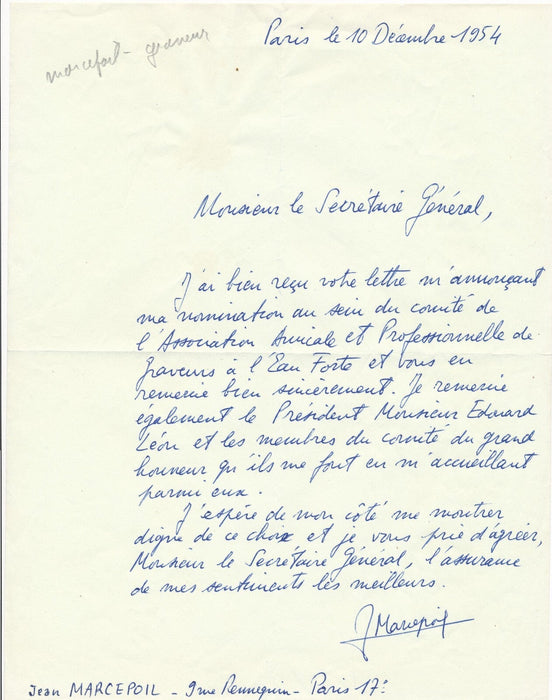 Paris le 10 Décembre 1954
marcefoil - graveur
Monsieur le Secrétaire Général,
J'ai bien reçu votre lettre m'annonçant
ma nomination au sein du comité de
l'Association Amicale et Professionnelle de
Graveurs à l'Eau Forte et vous en
remercie bien sincèrement. Je remercie
également le Président Monsieur Edouard
Léon et les membres du comité du grand
honneur qu'ils me font en m'accueillant
parmi eux.
J'espère de mon côté me montrer
digne de ce choix et je vous prie d'agréer,
Monsieur le Secrétaire Général, l'assurance
de mes sentiments les meilleurs.
J Marcepoil
Jean MARCEPOIL - 9 rue Rennequin - Paris 17e